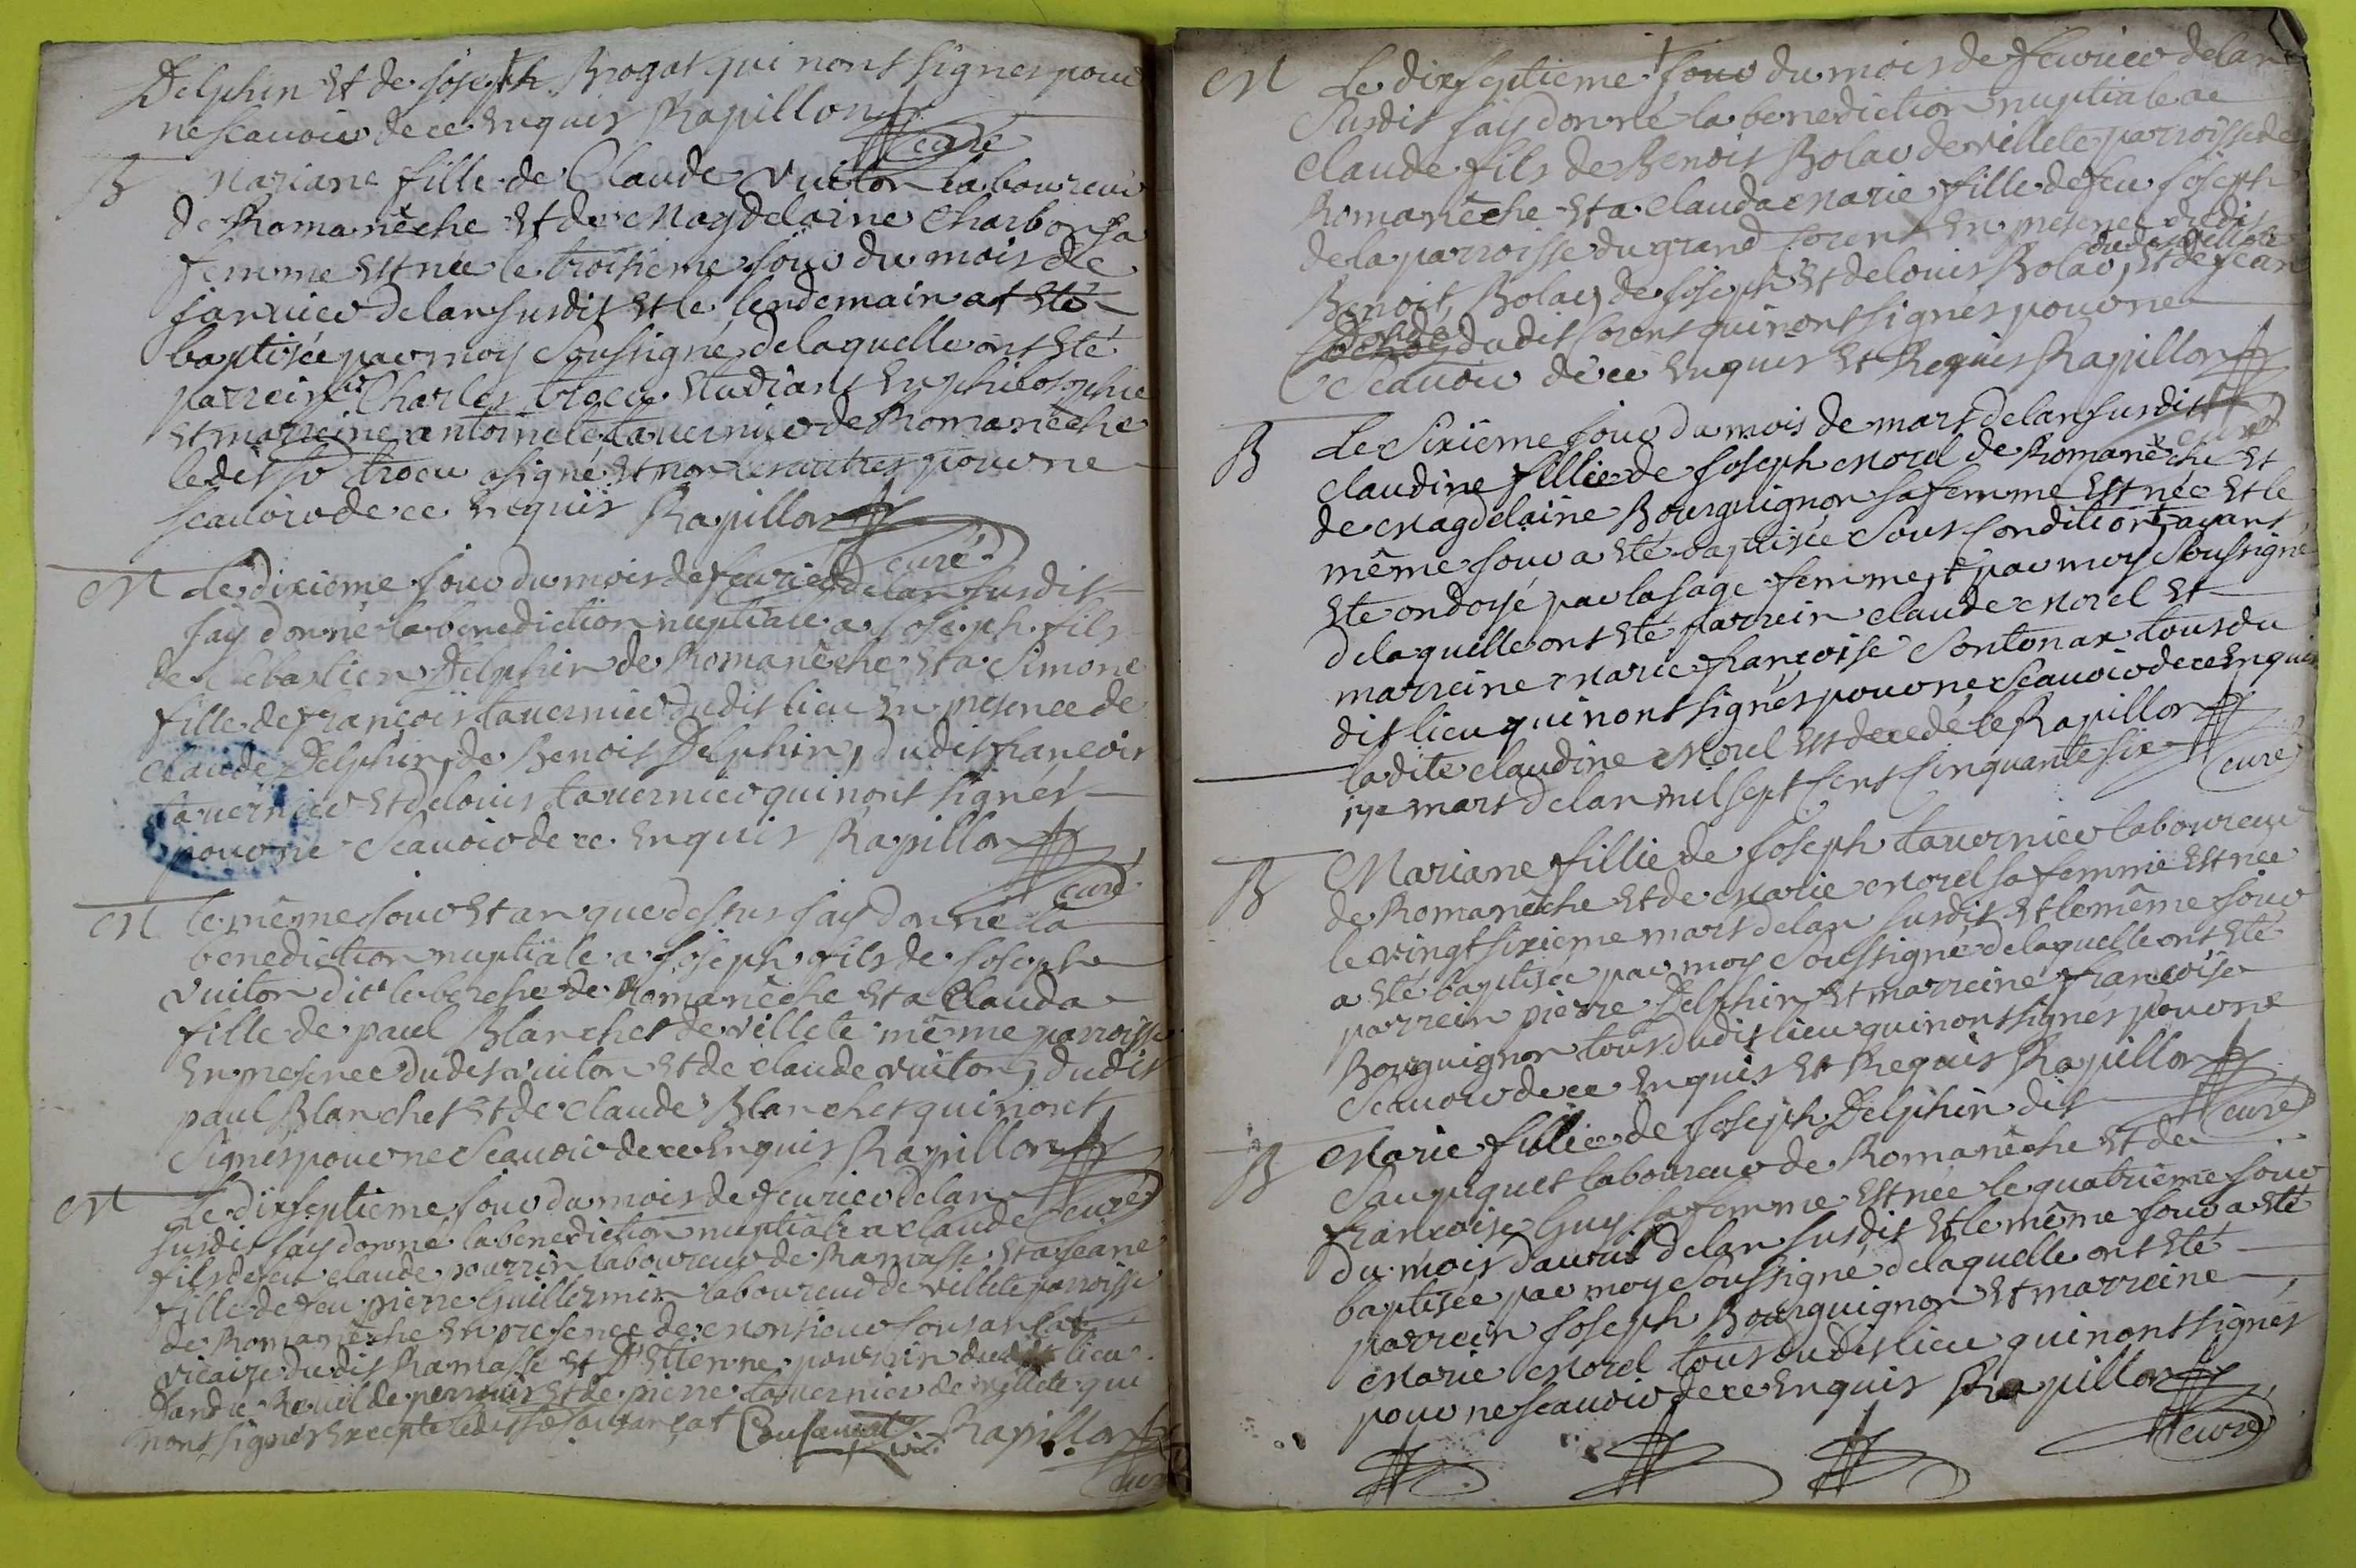 Delphin et de joseph Brogat qui nont signes pour
ne scauoir de ce enquis Rapillon
curé
B Mariane fille de Claude vuiton laboureur
de Romanêche et de Magdelaine Charbon sa
femme est née le troisieme jour du mois de
januier de lan susdit et le lendemain at eté
baptisée par moy soussigné, de laquelle ont eté
parrein sr Charles trocu etudiant en philosophie
et marreine antoinete tauernier de Romanêche
ledit sr trocu a signé et non les autres pour ne
scauoir de ce enquis Rapillon
curé
M le dixième jour du mois de feurier de lan susdit
jay donné la benediction nuptiale a joseph fils
de sebastien Delphin de Romanêche et a Simone
fille de françois tauernier dudit lieu en presence de
claude Delphin, de Benoit Delphin, dudit françois
tauernier et de louis tauernier qui nont signés
pour ne scauoir de ce enquis Rapillon
curé
M le même jour et an que dessus jay donné la
benediction nuptiale a joseph fils de joseph
vuiton dit le berche de Romanêche et a Clauda
fille de paul Blanchet de villete même parroisse
en presence dudit vuiton et de claude vuiton, dudit
paul Blanchet et de claude Blanchet qui nont
signés pour ne scauoir de ce enquis Rapillon
curé
M Le dixseptieme jour du mois de feurier de lan
susdit jay donné la benediction nuptiale a claude
fils de feu claude pourrin laboureur de Ramasse et a jeane
fille de feu pierre Guillermin laboureur de villete parroisse
de Romanêche en presence de monsieur
vicaire dudit Ramasse et d'Etienne pourrin dudit lieu
et de pierre tauernier de villete qui
nont signés excepté ledit sr Rapillon
curé
M Le dixseptieme jour du mois de feurier de lan
susdit jay donné la benediction nuptiale a
claude fils de Benoit Bolar de villete parroisse de
Romanêche et a clauda Marie fille de feu joseph
de la parroisse du grand Corent en presence dudit
dudit villete
Benoit Bolar, de joseph et de louis Bolar, et de jean
dudit Corent qui nont signés pour ne
scauoir de ce enquis et Requis Rapillon
curé
B Le sixieme jour du mois de mars de lan susdit
claudine fillie de joseph Morel de Romanêche et
de Magdelaine Bourguignon sa femme est née et le
même jour a eté baptisée sous condition, ayant
eté ondoyé par la sage femme, par moy soussigné
de laquelle ont eté parrein claude Morel et
marreine Marie françoise Sontonax tous du
dit lieu qui nont signés pour ne scauoir de ce enquis
Rapillon
curé
ladite claudine Morel est decedé le
17e mars de lan mil sept cent cinquante six
B Mariane fillie de joseph tauernier laboureur
de Romanêche et de Marie Morel sa femme est née
le vingt sixieme mars de lan susdit et le même jour
a eté baptisée par moy soussigné de laquelle ont eté
parrein pierre Delphin et marreine françoise
Bourguignon tous dudit lieu qui nont signés pour ne
scauoir de ce enquis et Requis Rapillon
curé
B Marie fillie de joseph Delphin dit
Saupiquet laboureur de Romanêche et de
françoise Guy sa femme est née le quatrieme jour
du mois dauril de lan susdit et le même jour a eté
baptisée par moy soussigné de laquelle ont eté
parrein joseph Bourguignon et marreine
Marie Morel tous dudit lieu qui nont signés
pour ne scauoir de ce enquis Rapillon
curé